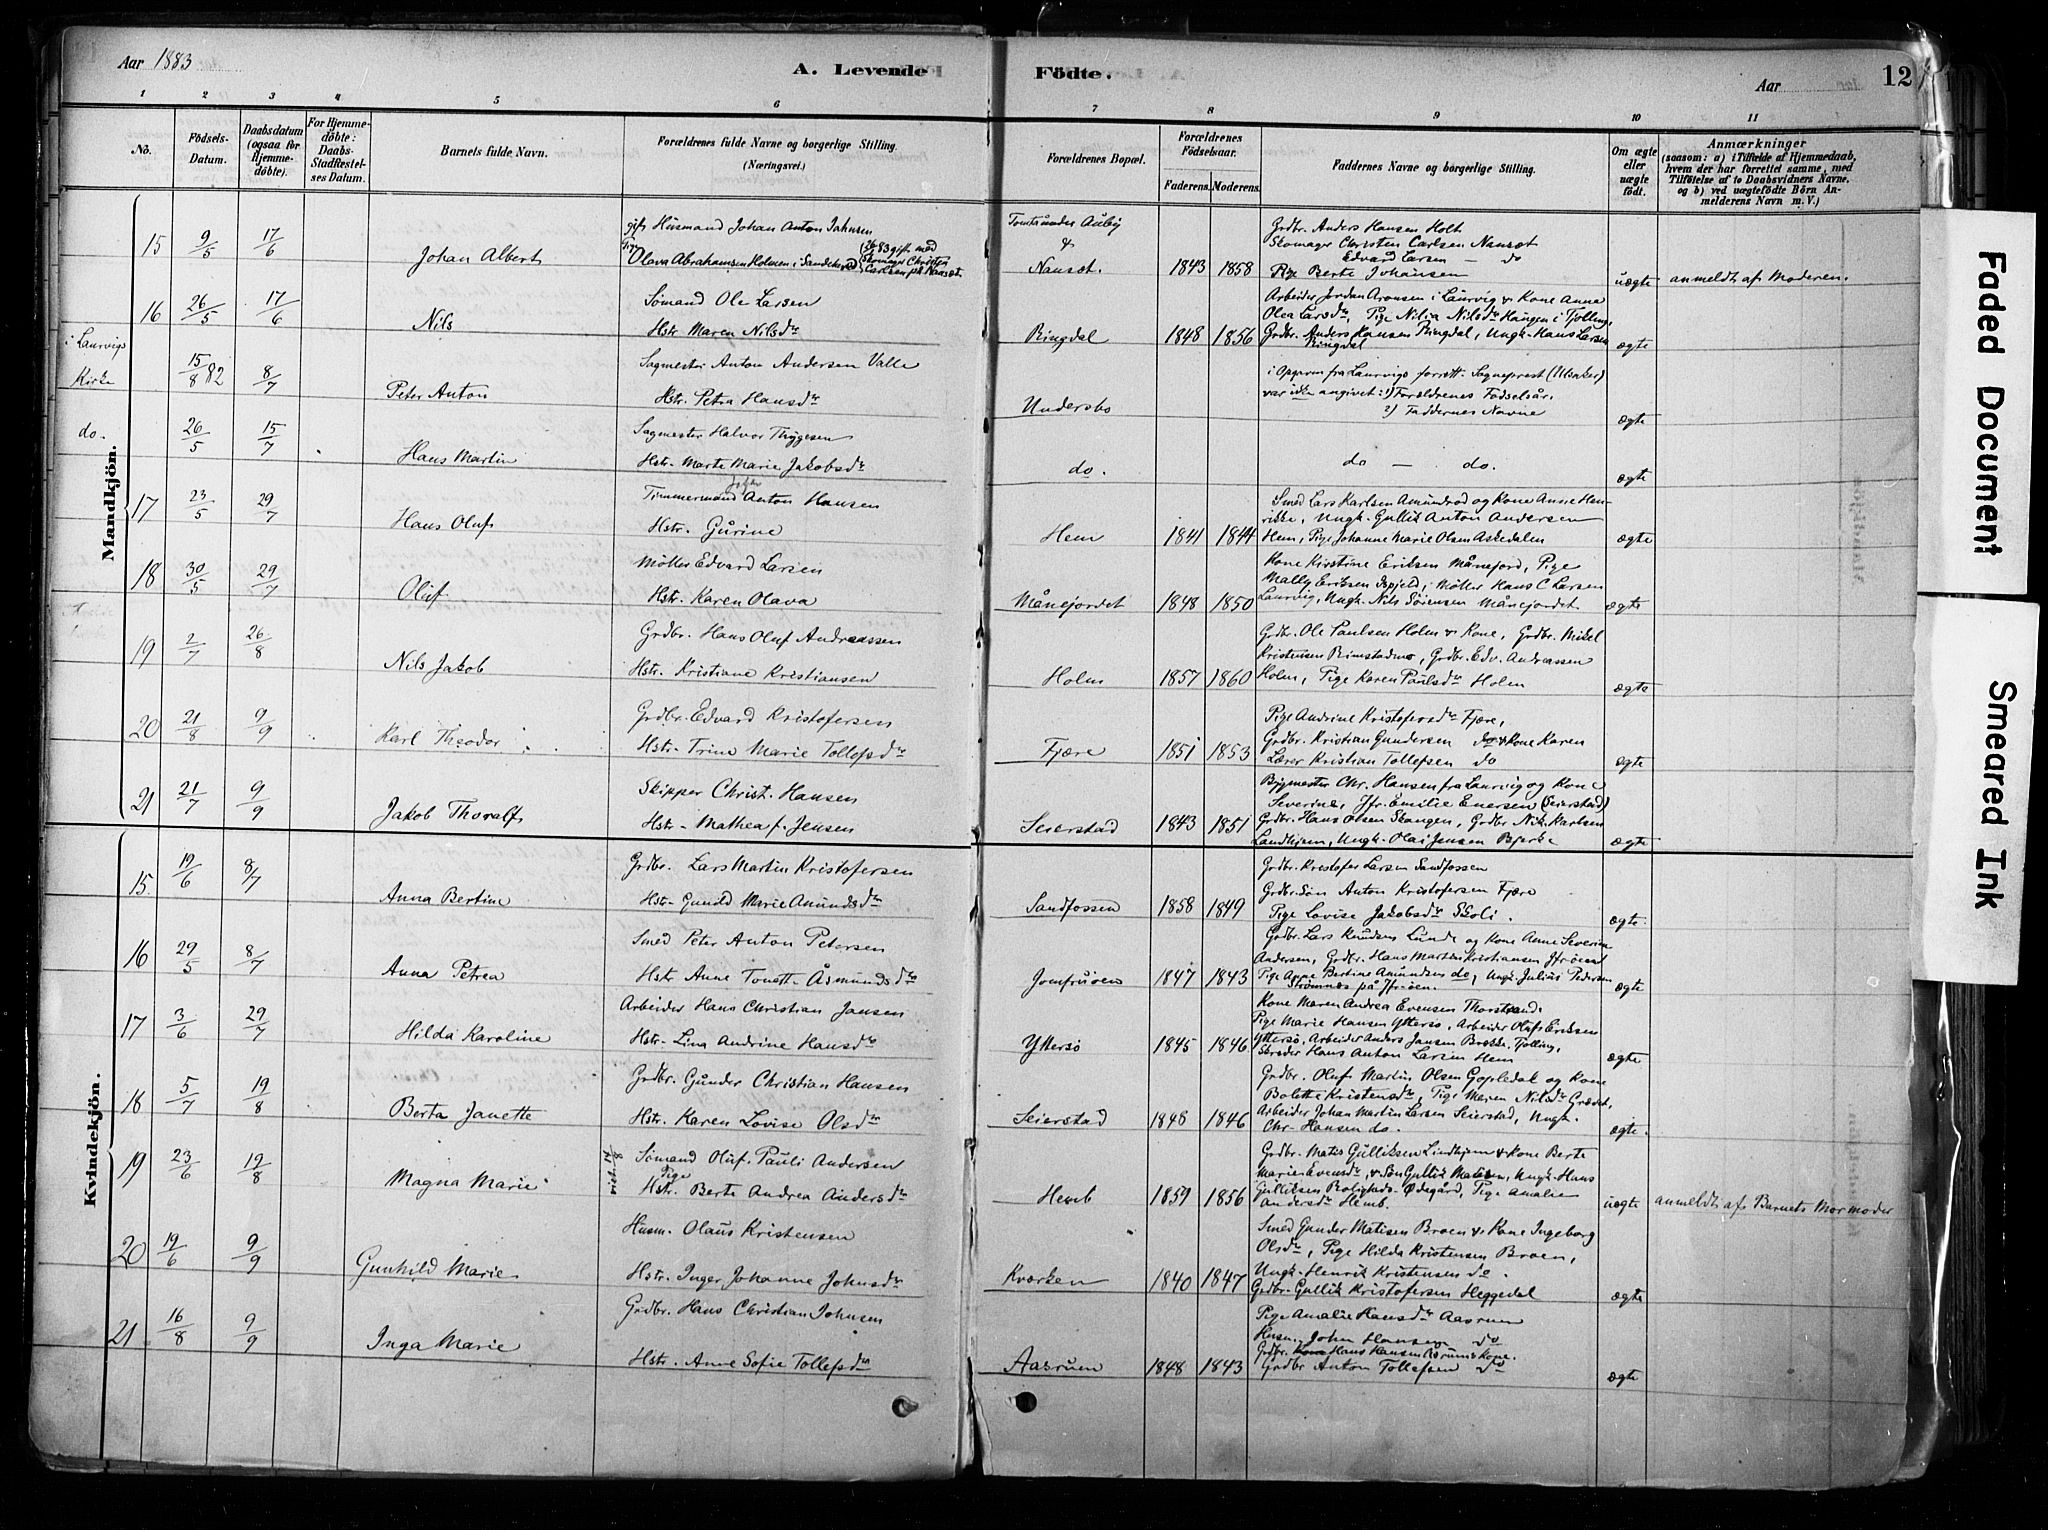 Aar 1883
A. Levende
Födte.
Aar
12
1 2 3 4 5 6 7 8 9 10 11
No.
Födsels-Datum.
Daabsdatum (ogsaa for Hjemmedöbte).
For Hjemmedöbte: Daabs-Stadfæstelses Datum.
Barnets fulde Navn.
Forældrenes fulde Navne og borgerlige Stilling.
(Næringsvei.)
Forældrenes Bopæl.
Forældrenes Födselsaar.
Faderens. Moderens.
Faddernes Navne og borgerlige Stilling.
Om ægte eller uægte födt.
Anmærkninger
(saasom: a) i Tilfælde af Hjemmedaab, hvem der har forrettet samme, med Tilföielse af to Daabsvidners Navne, og b) ved uægtefödte Börn Anmelderens Navn m. V.)
Mandkjön.
15 9/5 17/6 Johan Albert
gift Husmand Johan Anton Jahnsen
Olava Abrahamsen Holmen i Sandeherred
gift med Skomager Christen Carlsen på Nansæt
Tomt under Auby & Nansæt. 1843 1858
Grdbr. Anders Hansen Holt
Skomager Christen Carlsen Nansæt
Edvard Larsen — do
Pige Berte Johansen
uægte anmeldt af Moderen.
16 26/5 17/6 Nils
Sømand Ole Larsen
Hstr. Maren Nilsdr
Ringdal 1848 1856
Arbeider Jordan Aronsen i Laurvig & Kone Anne
Olea Larsdr, Pige Nilia Nilsdr Haugen i Tjølling,
Grdbr. Anders Hansen Ringdal, Ungk. Hans Larsen
Ringdal
ægte
i Laurvigs Kirke
15/8 82 8/7 Peter Anton
Sagmester Anton Andersen Valle
Hstr. Petra Hansdr
Undersbo
i Opgaven fra Laurvigs forrett. Sogneprest (Ulsaker)
var ikke angivet: 1) Forældrenes Fødselsår.
2) Faddernes Navne
ægte
do.
26/5 15/7 Hans Martin
Sagmester Halvor Thygesen
Hstr. Marte Marie Jakobsdr
do.
do — do.
ægte
17 23/5 29/7 Hans Oluf
Tømmermand Anton Hansen
Hstr. Gurine
Hem 1841 1844
Smed Lars Karlsen Amundrød og Kone Anne Hen-
rikke, Ungk. Gullik Anton Andersen
Hem, Pige Johanne Marie Olsen Askedalen
ægte
18 30/5 29/7 Oluf
Møller Edvard Larsen
Hstr. Karen Olava
Månejordet 1848 1850
Kone Kirstine Eriksen Månejord, Pige
Mally Eriksen Ispjeld, Møller Hans C Larsen
Laurvig, Ungk. Nils Sörensen Månejordet
ægte
19 2/7 26/8 Nils Jakob
Grdbr. Hans Oluf Andreassen
Hstr. Kristiane Kristiansen
Holm 1857 1860
Grdbr. Ole Paulsen Holm & Kone, Grdbr. Mikel
Kristensen Rimstadmo, Grdbr. Edv. Andreassen
Holm, Pige Karen Paulsdr Holm
ægte
20 21/8 9/9 Karl Theodor
Grdbr. Edvard Kristofersen
Hstr. Trine Marie Tollefsdr
Fjære 1851 1853
Pige Andrine Kristofersdr Fjære,
Grdbr. Kristian Gundersen do & Kone Karen
Lærer Kristian Tollefsen do
ægte
21 21/7 9/9 Jakob Thoralf
Skipper Christ. Hansen
Hstr. Mathea f. Jensen
Seierstad 1843 1851
Bygmester Chr. Hansen fra Laurvig og Kone
Severine, Jfr. Emilie Enersen (Seierstad)
Grdbr. Hans Olsen Skangen, Grdbr Nik. Karlsen
Landhjem, Ungk. Olai Jensen Bjerke
ægte
Kvindekjön.
15 19/6 8/7 Anna Bertine
Grdbr. Lars Martin Kristofersen
Hstr. Gunild Marie Amundsdr
Sandfossen 1858 1849
Grdbr. Kristofer Larsen Sandfossen
Grdbr. Søn Anton Kristofersen Fjære
Pige Lovise Jakobsdr Skoli.
ægte
16 29/5 8/7 Anna Petrea
Smed Peter Anton Petersen
Hstr Anne Tonett. Åsmundsdr
Jomfruöen 1847 1843
Grdbr. Lars Knudsen Lunde og Kone Anne Severine
Andersen, Grdbr. Hans Martin Kristiansen Jfrøen
Pige Anne Bertine Amundsen do, Ungk. Julius Pedersen
Strömnæs på Jfr.öen.
ægte
17 3/6 29/7 Hilda Karoline
Arbeider Hans Christian Jansen
Hstr. Lina Andrine Hansdr
Yttersö 1845 1846
Kone Maren Andrea Evensen Thorstrand.
Pige Marie Hansen Yttersø, Arbeider Oluf Eriksen
Yttersö, Arbeider Anders Jansen Brekke, Tjølling,
Skræder Hans Anton Larsen Hem
ægte
18 5/7 19/8 Berta Janette
Grdbr. Gunder Christian Hansen
Hstr. Karen Lovise Olsdr
Seierstad 1848 1846
Grdbr. Oluf Martin Olsen Gopledal og Kone
Bolette Kristensdr, Pige Maren Nilsdr Grædet,
Arbeider Johan Martin Larsen Seierstad, Ungk.
Chr. Hansen do.
ægte
19 23/6 19/8 Magna Marie
Sømand Oluf Pauli Andersen
Pige
Hstr. Berte Andrea Andersdr
Hemb 1859 1856
Grdbr. Matis Gulliksen Lindhjem & Kone Berte
Marie Evensdr, & Søn Gullik Matisen, Ungk. Hans
Gulliksen Bolighets-Ødegård, Pige Amalie
Andersdr Hemb.
uægte anmeldt af Barnets Mormoder
20 19/6 9/9 Gunhild Marie
Husm. Olaus Kristensen
Hstr. Inger Johanne Johnsdr
Kværken 1840 1847
Smed Gunder Matisen Broen & Kone Ingeborg
Olsdr, Pige Hilda Kristensen Broen,
Ungk. Henrik Kristensen do.
Grdbr. Gullik Kristofersen Heggedal
ægte
21 16/8 9/9 Inga Marie
Grdbr. Hans Christian Johnsen
Hstr. Anne Sofie Tollefsdr
Aasrum 1848 1843
Pige Amalie Hansdr Aasrum
Husm. John Hansen do
Grdbr. Hans Hansen Åsrum & Kone.
Grdbr Anton Tollefsen do
ægte
Faded Document
Smeared Ink